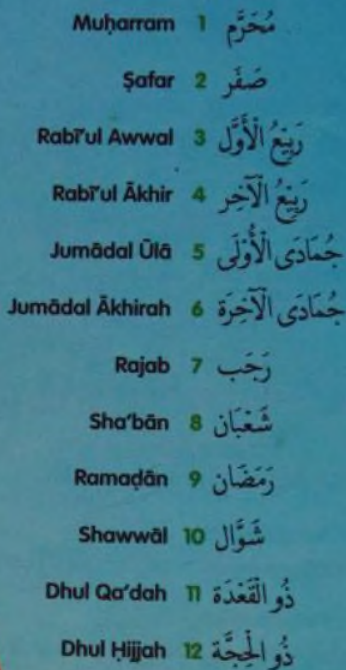 Muḥarram 1 مُحَرَّم
Ṣafar 2 صَفَر
Rabī'ul Awwal 3 رَبِيْعُ الْأَوَّل
Rabī'ul Ākhir 4 رَبِيْعُ الْآخِر
Jumādal Ūlā 5 جُمَادَى الْأُوْلَى
Jumādal Ākhirah 6 جُمَادَى الْآخِرَة
Rajab 7 رَجَب
Sha'bān 8 شَعْبَان
Ramaḍān 9 رَمَضَان
Shawwāl 10 شَوَّال
Dhul Qa'dah 11 ذُو الْقَعْدَة
Dhul Ḥijjah 12 ذُو الْحِجَّة